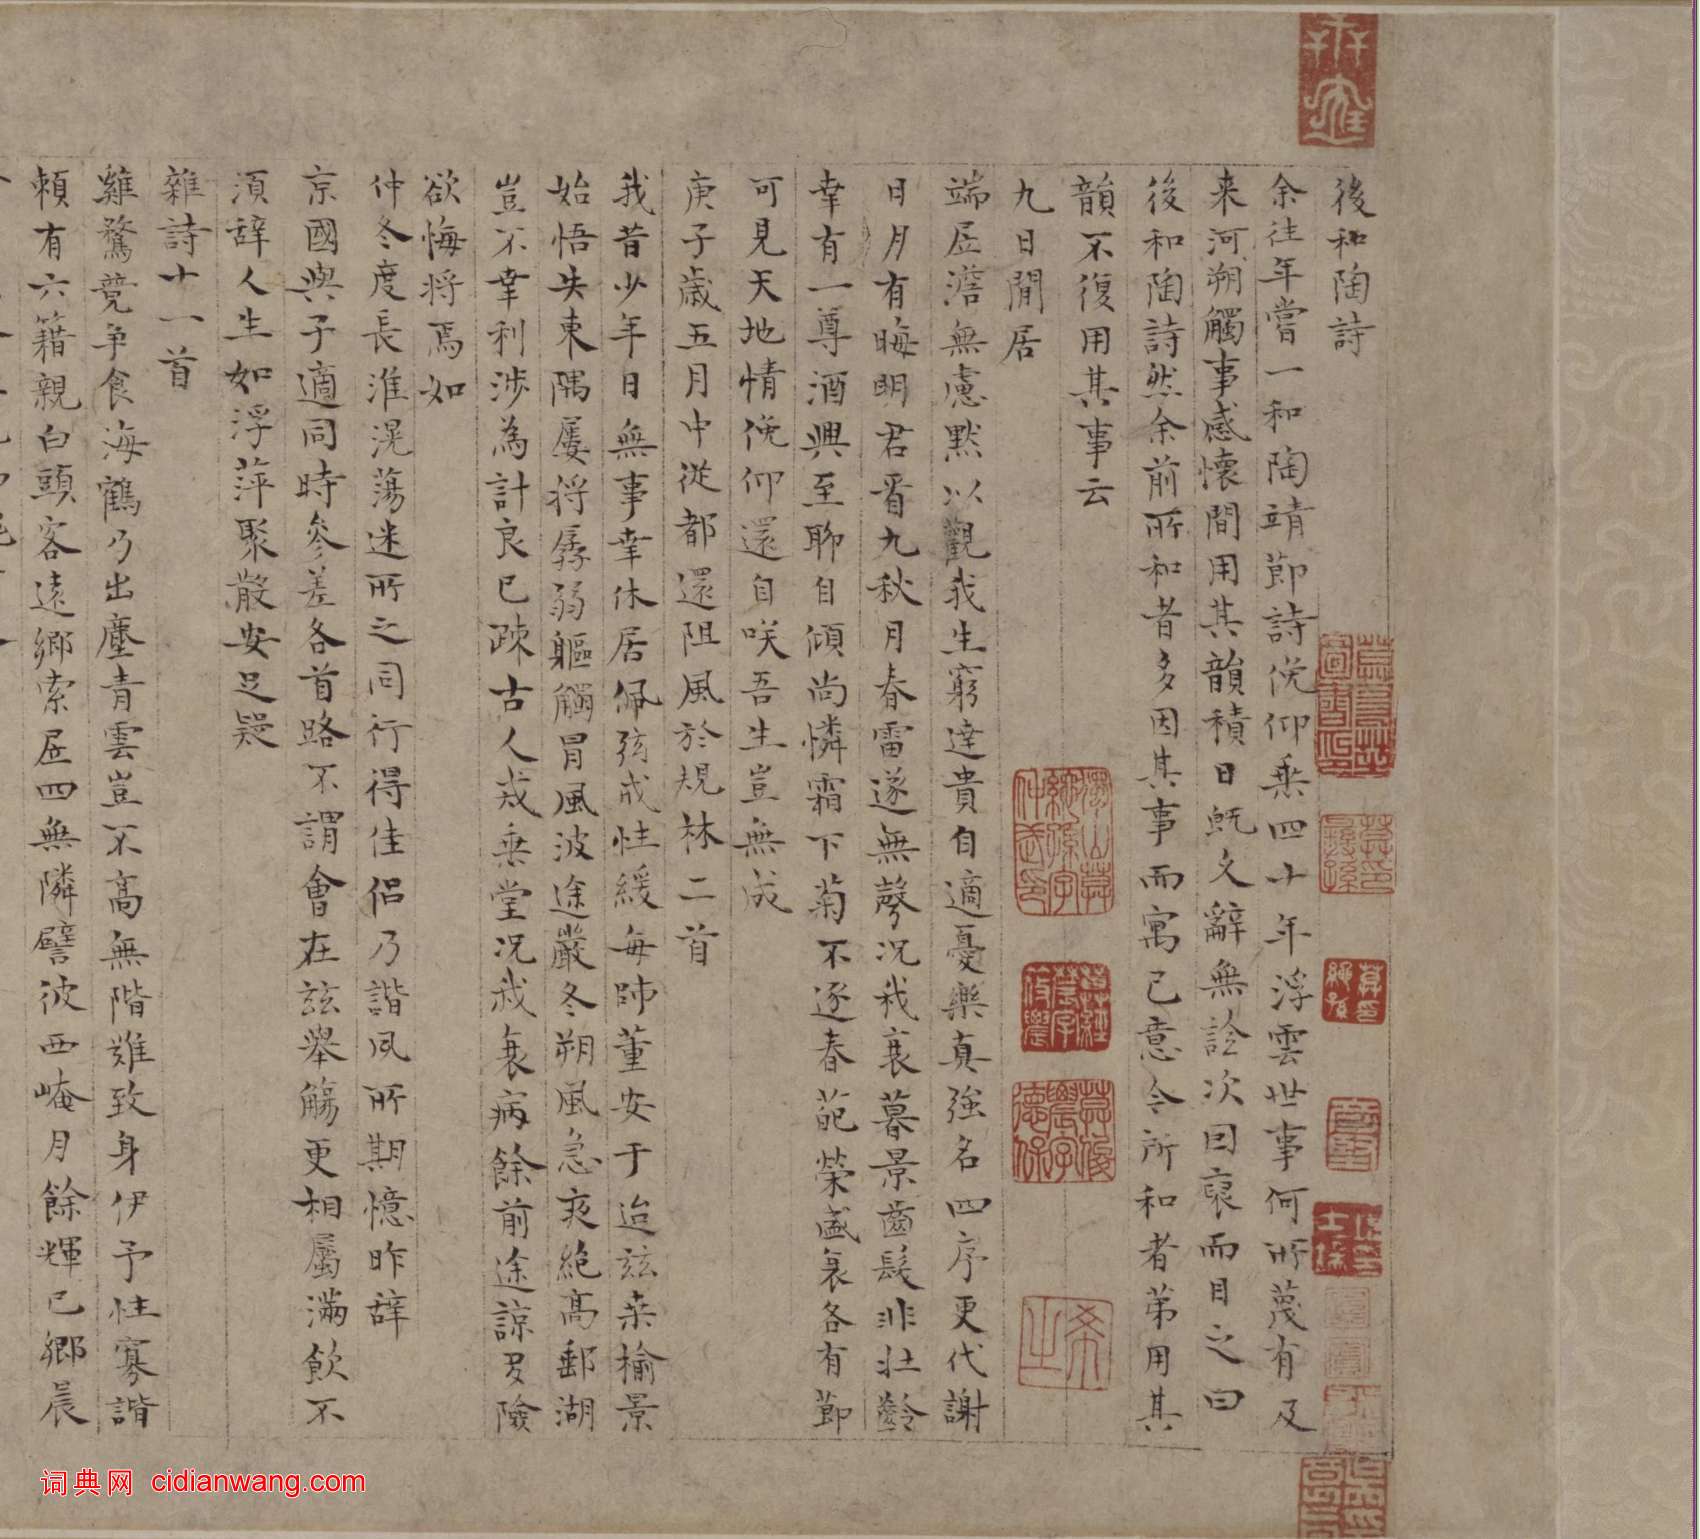 後和陶詩
余往年嘗一和陶靖節詩俛仰乗四十年浮雲世事何所蔑有及
来河朔觸事感懷間用其韻積日既久辭無詮次因裒而目之曰
後和陶詩然余前所和者多因其事而寓已意今所和者苐用其
韻不復用其事云
九日閒居
端居澹無慮黙以觀我生窮達貴自適憂樂真強名四序更代謝
日月有晦明君看九秋月春雷遂無聲况我衰暮景齒髮非壯齡
幸有一尊酒興至聊自傾尚憐霜下菊不逐春葩榮盛衰各有節
可見天地情俛仰還自咲吾生豈無成
庚子歳五月中従都還阻風於規林二首
我昔少年日無事幸休居佩弦戒性緩每師董安于迨兹桑榆景
始悟失東隅屢将孱弱軀觸冒風波途嚴冬朔風急夜絶髙郵湖
豈不幸利渉為計良已疎古人戒乗堂况我衰病餘前途諒多險
欲悔将焉如
仲冬度長淮滉蕩迷所之同行得佳侣乃諧夙所期憶昨辞
京國與子適同時參差各首路不謂會在兹舉觴更相屬滿飲不
須辞人生如浮萍聚散安足疑
雜詩十一首
雞鶩競争食海鶴乃出塵青雲豈不髙無階難致身伊予性寡諧
頼有六籍親白頭客遠鄉索居四無隣譬彼西崦月餘輝已鄉晨
词典网 cidianwang.com